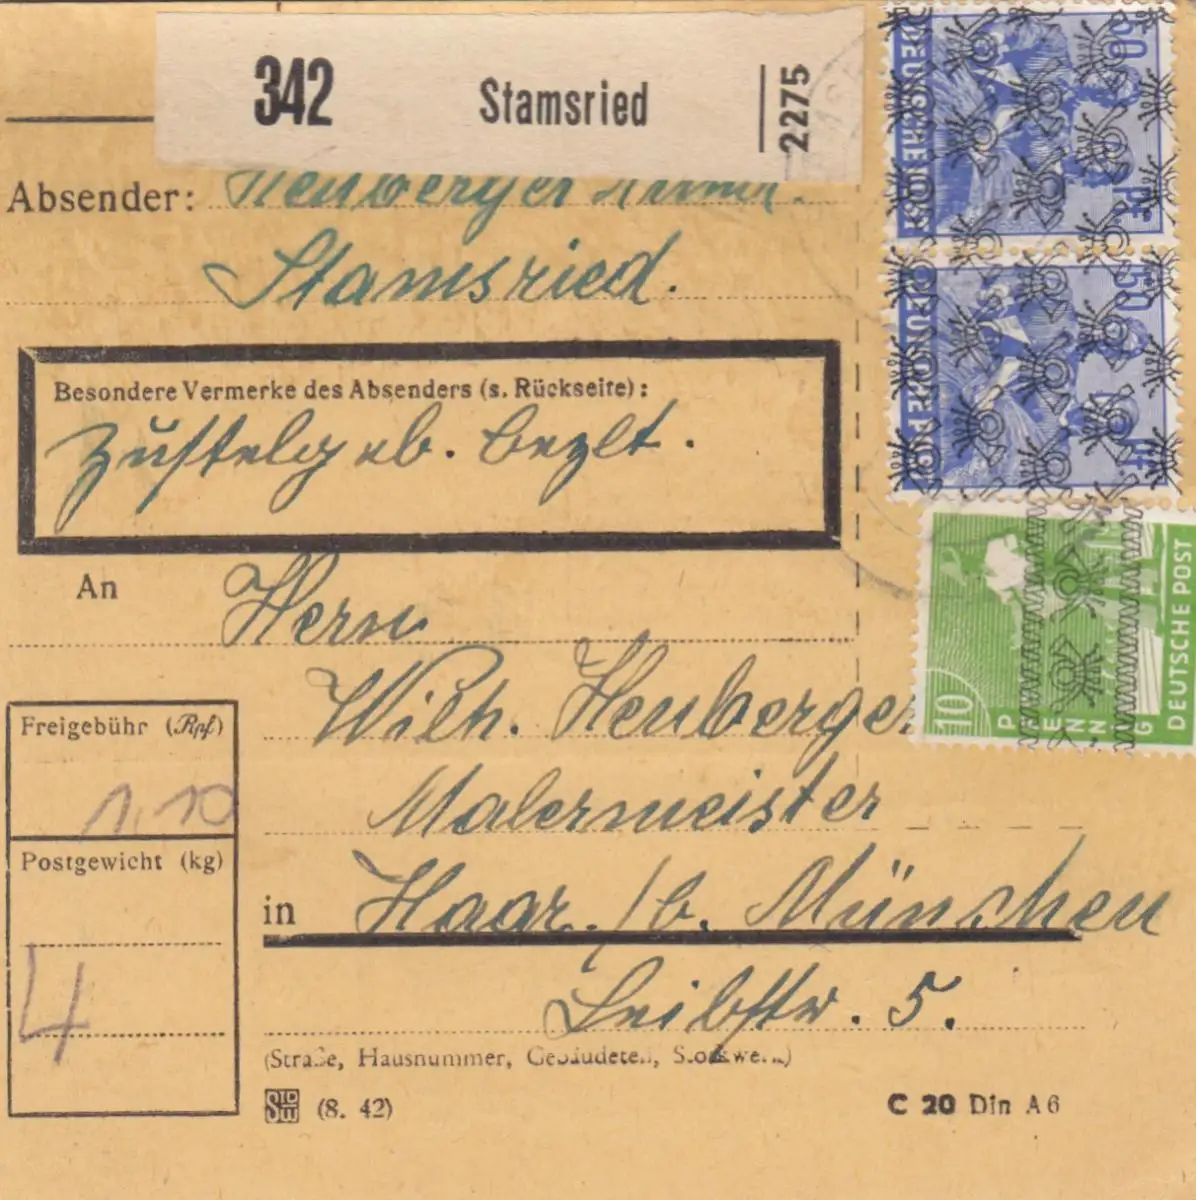 342 Stamsried 2275
Absender: Heuberger
Stamsried.
Besondere Vermerke des Absenders (s. Rückseite):
Zustelgeb. bezlt.
An Herrn
Wilh. Heuberger
Malermeister
in Haar. / b. München
Leibstr. 5.
(Straße, Hausnummer, Gebäudeteil, Stockwerk)
Freigebühr (Rpf)
1,10
Postgewicht (kg)
4
(8. 42)
C 20 Din A6
50 PF
DEUTSCHE POST
50 PF
DEUTSCHE POST
10 PFENNIG
DEUTSCHE POST